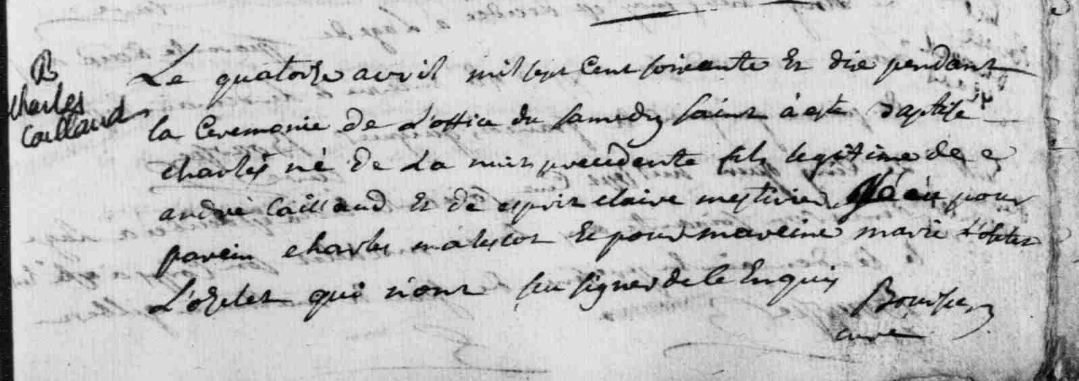 B
charles
Caillaud
Le quatorze avril mil sept Cent soixante Et dix pendant
la Ceremonie de L'office du samedy saint a été Baptisé
charles né de La nuit precedente fils legitime de
andré Caillaud Et de esprit claire mestivier a eu pour
parein charles malescot Et pour mareine marie
L'ozelet qui n'ont sçu signer de le Enquis
curé